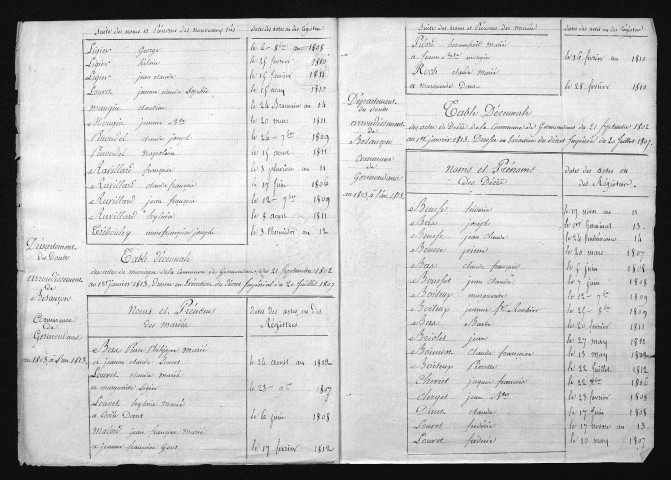 Suite des noms et Prénoms des nouveaux nés
dates des actes ou des Registres
Ligier George le 6 8bre an 1808
Ligier hilaire le 28 fevrier 1810
Ligier jean claude le 15 janvier 1811
Louvet jeanne claude Sophie le 15 may 1810
mangin claudine le 24 Brumaire an 14
Mougin jeanne Bte le 20 mai 1811
claude joseph le 24 9bre 1809
napoléon le 15 avril 1811
Ravillard françois le 8 pluviose an 11
Ruvillard claude françois le 17 juin 1806
Ruvillard jean françois le 12 9bre 1809
Ruvillard hylaire le 8 avril 1811
anne françoise joseph le 3 an 12
Département
du Doubs
arrondissement
de
Besançon
Commune
de
Germondans
au 1803 à l'an 1813.
Table décennale
des actes de mariages de la Commune de Germondans du 21 Septembre 1802
au 1er janvier 1813. Dressé en Exécution du décret Impérial du 20 Juillet 1807.
Noms et Prénoms
des mariés
Dates des actes ou des
Régistres
Bess Pierre Philippe marié
a jeanne claude Louvet le 24 aoust an 1812
Louvet claude marié
a marguerite Ligier le 23 9bre 1807
Louvet hylaire marié
a Cecile Dard le 6 juin 1808
jean françois marié
a jeanne françoise le 17 fevrier 1812
Suite des noms et Prénoms des mariés
dates des actes ou des Registres
marié
a jeanne Bte mougin le 19 fevrier an 1810
Roch claude marié
a marguerite Dard le 28 fevrier 1810
Département
du doubs
arrondissement
de
Besançon
Commune
de
Germondans
au 1803 à l'an 1813.
Table Décennale
des actes de Décès de la Commune de Germondans du 21 Septembre 1802
au 1er janvier 1813. Dressé en Exécution du décret Impérial du 20 Juillet 1807.
Noms et Prénoms
des Décès
Dates des actes ou
des Régistres
le 17 nivose an 11
Bess joseph le 1er Germinal 13
jean claude le 24 Vendémiaire 14
pierre le 20 mars 1807
Bess claude françois le 5 juin 1808
jean claude le 7 juin 1808
Boiteux marguerite le 12 9bre 1809
Boiteux jeanne Bte le 25 8bre 1809
Bess Barbe le 20 fevrier 1811
jean le 27 mars 1811
claude françoise le 13 may
Boiteux Pierrette le 22 Juillet 1812
jaque françois le 22 Xbre 1806
Clerget jean Bte le 23 fevrier 1808
claude le 17 juin 1808
Louvet frédéric le 17 an 13
Louvet frédéric le 10 may 1807